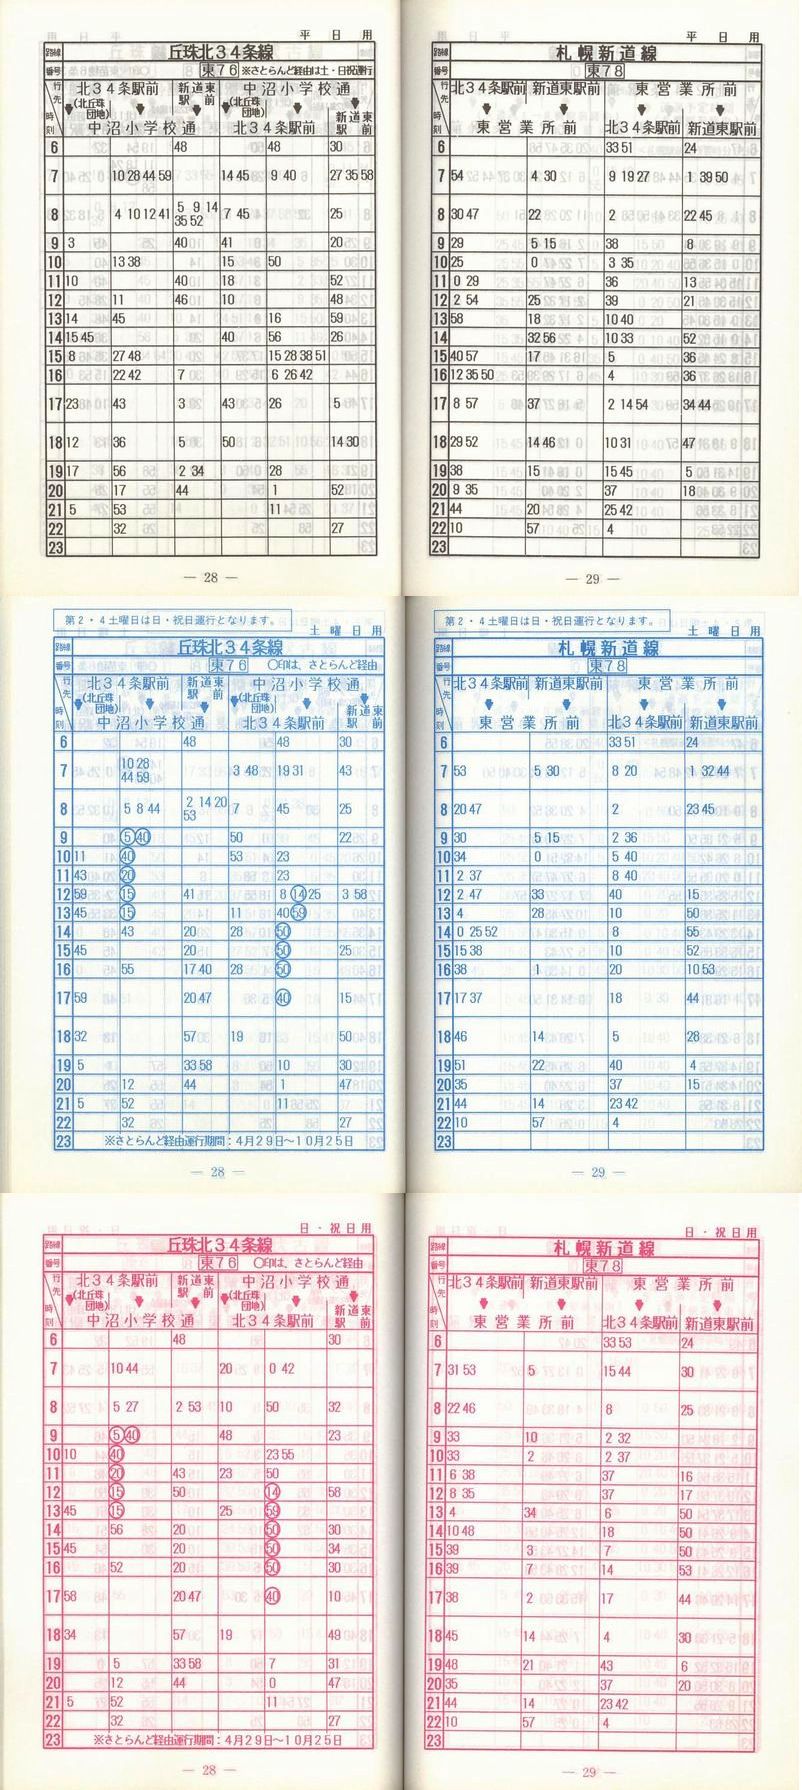 平日用
路線 丘珠北34条線
番号 東76 ※さとらんど経由は土・日祝運行
行先 北34条駅前 新道東駅前 中沼小学校通
(北丘珠団地) (北丘珠団地)
時刻 中沼小学校通 北34条駅前 新道東駅前
6 48 48 30
7 10 28 44 59 14 45 9 40 27 35 58
8 4 10 12 41 5 9 14 35 52 7 45 25
9 3 40 41 20
10 13 38 15 50
11 10 40 18 52
12 11 46 10 48
13 14 45 16 59
14 15 45 40 56 26
15 8 27 48 15 28 38 51
16 22 42 7 6 26 42
17 23 43 3 43 26 5
18 12 36 5 50 14 30
19 17 56 2 34 28
20 17 44 1 52
21 5 53 11
22 32 27
23
― 28 ―
平日用
路線 札幌新道線
番号 東78
行先 北34条駅前 新道東駅前 東営業所前
時刻 東営業所前 北34条駅前 新道東駅前
6 33 51 24
7 54 4 30 9 19 27 1 39 50
8 30 47 22 2 22 45
9 29 5 15 38 8
10 25 0 3 35
11 0 29 36 13
12 2 54 25 39 21
13 58 18 10 40
14 32 56 10 33 52
15 40 57 17 5 36
16 12 35 50 4 36
17 8 57 37 2 14 54 34 44
18 29 52 14 46 10 31 47
19 38 15 15 45 5
20 9 35 37 18
21 44 20 25 42
22 10 57 4
23
― 29 ―
第2・4土曜日は日・祝日運行となります。
土曜日用
路線 丘珠北34条線
番号 東76 ○印は、さとらんど経由
行先 北34条駅前 新道東駅前 中沼小学校通
(北丘珠団地) (北丘珠団地)
時刻 中沼小学校通 北34条駅前 新道東駅前
6 48 48 30
7 10 28 44 59 3 48 19 31 43
8 5 8 44 2 14 20 53 7 45 25
9 ⑤ ㊵ 50 22
10 11 ㊵ 53 23
11 43 ⑳ 23
12 59 ⑮ 41 8 ⑭ 25 3 58
13 45 ⑮ 11 40 59
14 43 20 28 ㊿
15 45 20 ㊿ 25
16 55 17 40 28 ㊿
17 59 20 47 ㊵ 15
18 32 57 19 50
19 5 33 58 10 30
20 12 44 1 47
21 5 52 11
22 32 27
23 ※さとらんど経由運行期間：4月29日～10月25日
― 28 ―
第2・4土曜日は日・祝日運行となります。
土曜日用
路線 札幌新道線
番号 東78
行先 北34条駅前 新道東駅前 東営業所前
時刻 東営業所前 北34条駅前 新道東駅前
6 33 51 24
7 53 5 30 8 20 1 32 44
8 20 47 2 23 45
9 30 5 15 2 36
10 34 0 5 40
11 2 37 8 40
12 2 47 33 40 15
13 4 28 10 50
14 0 25 52 8 55
15 15 38 10 52
16 38 1 20 10 53
17 17 37 18 44
18 46 14 5 28
19 51 22 40 4
20 35 37 15
21 44 14 23 42
22 10 57 4
23
― 29 ―
日・祝日用
路線 丘珠北34条線
番号 東76 ○印は、さとらんど経由
行先 北34条駅前 新道東駅前 中沼小学校通
(北丘珠団地) (北丘珠団地)
時刻 中沼小学校通 北34条駅前 新道東駅前
6 48 30
7 10 44 20 0 42
8 5 27 2 53 10 50 32
9 ⑤ ㊵ 48 23
10 10 ㊵ 23 55
11 ⑳ 43 23 50
12 ⑮ 50 ⑭ 58
13 45 ⑮ 25 59
14 56 20 ㊿ 30
15 45 20 ㊿ 34
16 52 20 ㊿ 30
17 58 20 47 ㊵ 10
18 34 57 19 49
19 5 33 58 7 31
20 12 44 0 47
21 5 52 11
22 32 27
23 ※さとらんど経由運行期間：4月29日～10月25日
― 28 ―
日・祝日用
路線 札幌新道線
番号 東78
行先 北34条駅前 新道東駅前 東営業所前
時刻 東営業所前 北34条駅前 新道東駅前
6 33 53 24
7 31 53 5 15 44 30
8 22 46 8 25
9 33 10 2 32
10 33 2 2 37
11 6 38 37 16
12 8 35 37 17
13 4 34 6 50
14 10 48 18 50
15 39 3 7 50
16 39 7 14 53
17 38 2 17 44
18 45 14 4 30
19 48 21 43 6
20 35 37 20
21 44 14 23 42
22 10 57 4
23
― 29 ―